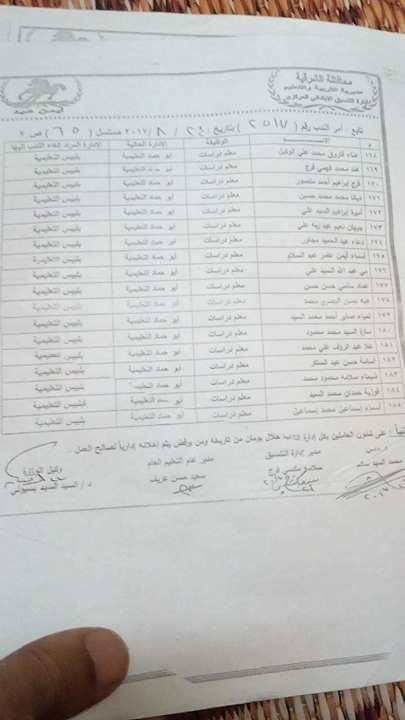 محافظة الشرقية
مديرية التربية والتعليم
إدارة التنسيق الابتدائي المركزي
تابع : أمر الندب رقم ( ٢٥١٧ ) بتاريخ ٢٤ / ٨ / ٢٠١٧ مسلسل ( ٦٥ ) ص
م الاســـم الوظيفة الإدارة الحالية الإدارة المراد إلغاء الندب إليها
١٦٨ هناء فاروق محمد علي الوكيل معلم دراسات أبو حماد التعليمية بلبيس التعليمية
١٦٩ هند محمد فهمي فرج معلم دراسات أبو حماد التعليمية بلبيس التعليمية
١٧٠ فرج إبراهيم أحمد منصور معلم دراسات أبو حماد التعليمية بلبيس التعليمية
١٧١ دينا محمد محمد حسين معلم دراسات أبو حماد التعليمية بلبيس التعليمية
١٧٢ أميرة إبراهيم السيد علي معلم دراسات أبو حماد التعليمية بلبيس التعليمية
١٧٣ جيهان نعيم عبد ربه علي معلم دراسات أبو حماد التعليمية بلبيس التعليمية
١٧٤ دعاء عبد الحميد معلم دراسات أبو حماد التعليمية بلبيس التعليمية
١٧٥ أسماء أيمن عبد السلام معلم دراسات أبو حماد التعليمية بلبيس التعليمية
١٧٦ مي عبد الله السيد علي معلم دراسات أبو حماد التعليمية بلبيس التعليمية
١٧٧ سامي حسن حسن معلم دراسات أبو حماد التعليمية بلبيس التعليمية
١٧٨ هبه حسن محمد معلم دراسات أبو حماد التعليمية بلبيس التعليمية
١٧٩ لمياء صابر أحمد محمد السيد معلم دراسات أبو حماد التعليمية بلبيس التعليمية
١٨٠ سارة السيد محمد محمود معلم دراسات أبو حماد التعليمية بلبيس التعليمية
١٨١ علا عبد الرؤف علي محمد معلم دراسات أبو حماد التعليمية بلبيس التعليمية
١٨٢ أسامة حسن عبد الستار معلم دراسات أبو حماد التعليمية بلبيس التعليمية
١٨٣ شيماء سلامه محمود محمد معلم دراسات أبو حماد التعليمية بلبيس التعليمية
١٨٤ فوزية حمدان محمد السيد معلم دراسات أبو حماد التعليمية بلبيس التعليمية
١٨٥ أسماء إسماعيل محمد إسماعيل معلم دراسات أبو حماد التعليمية بلبيس التعليمية
على شئون العاملين بكل إدارة خلال يومان من تاريخه ومن يرفض يتم إخلائه إدارياً لصالح العمل
مدير إدارة التنسيق مدير عام التعليم العام وكيل الوزارة
محمد السيد سالم سلامة فرج سعيد حسن عريف د / السيد السيد بسيوني